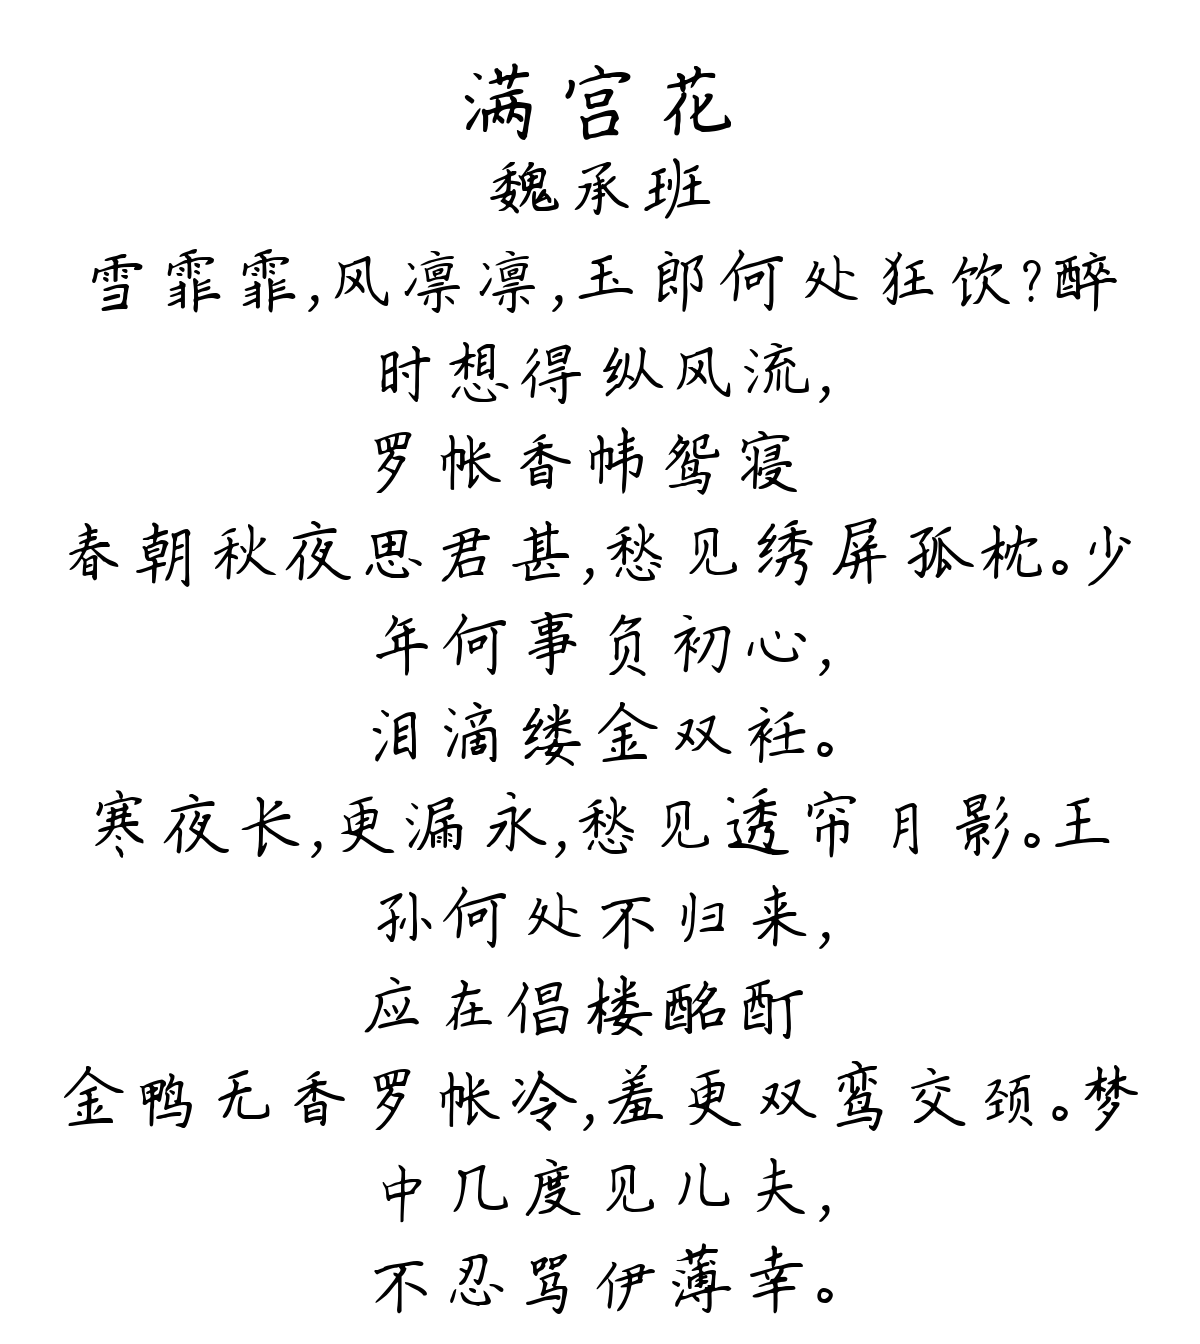 满宫花
魏承班
雪霏霏,风凛凛,玉郎何处狂饮?醉
时想得纵风流,
罗帐香帏鸳寝
春朝秋夜思君甚,愁见绣屏孤枕。少
年何事负初心,
泪滴缕金双衽。
寒夜长,更漏永,愁见透帘月影。王
孙何处不归来,
应在倡楼酩酊
金鸭无香罗帐冷,羞更双鸾交颈。梦
中几度见儿夫,
不忍骂伊薄幸。